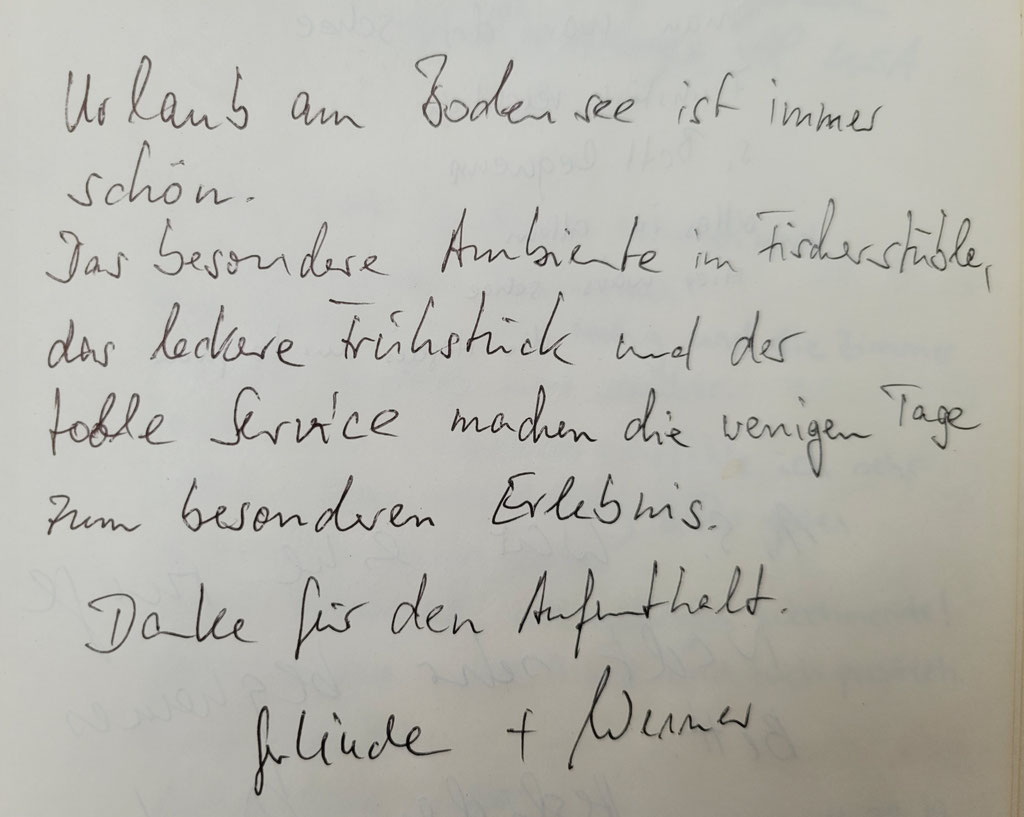 Urlaub am Bodensee ist immer
schön.
Das besondere Ambiente im Fischerstüble,
das leckere Frühstück und der
tolle Service machen die wenigen Tage
zum besonderen Erlebnis.
Danke für den Aufenthalt.
Gerlinde + Werner